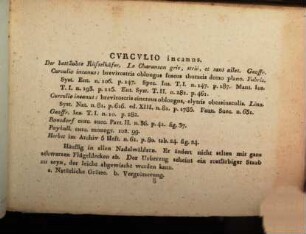 CVRCVLIO incanus.
Der bestäubte Rüsselkäfer. Le Charanson gris, strié, et sans ailes. Geoffr.
Curculio incanus: brevirostris oblongus fuscus thorace plano. Fabric.
Syst. Ent. n. 106. p. 147. Spec. Inf. T. I. n. 147. p. 187. Mant. Inf.
T. I. n. 198. p. 116. Ent. Syst. T. II. n. 281. p. 461.
Curculio incanus: brevirostris cinereus oblongus, elytris obtusiusculis. Linn.
Syst. Nat. n. 81. p. 616. ed. XIII. n. 81. p. 1786. Faun. Suec. n. 631.
Geoffr. Inf. T. I. n. 10. p. 282.
Bonsdorf mon. curc. Part II. n. 36. p. 41. fig. 37.
Paykull. mon. monogr. cur. 99.
Herbst im Archiv 5 Heft. n. 61. p. 80. tab. 24. fig. 24.
Häufig in allen Nadelwäldern. Er ändert nicht selten mit ganz
schwarzen Flügeldecken ab. Der Ueberzug scheint ein staubiger
zu seyn, der leicht abgewischt werden kann.
a. Natürliche Grösse. b. Vergrösserung.